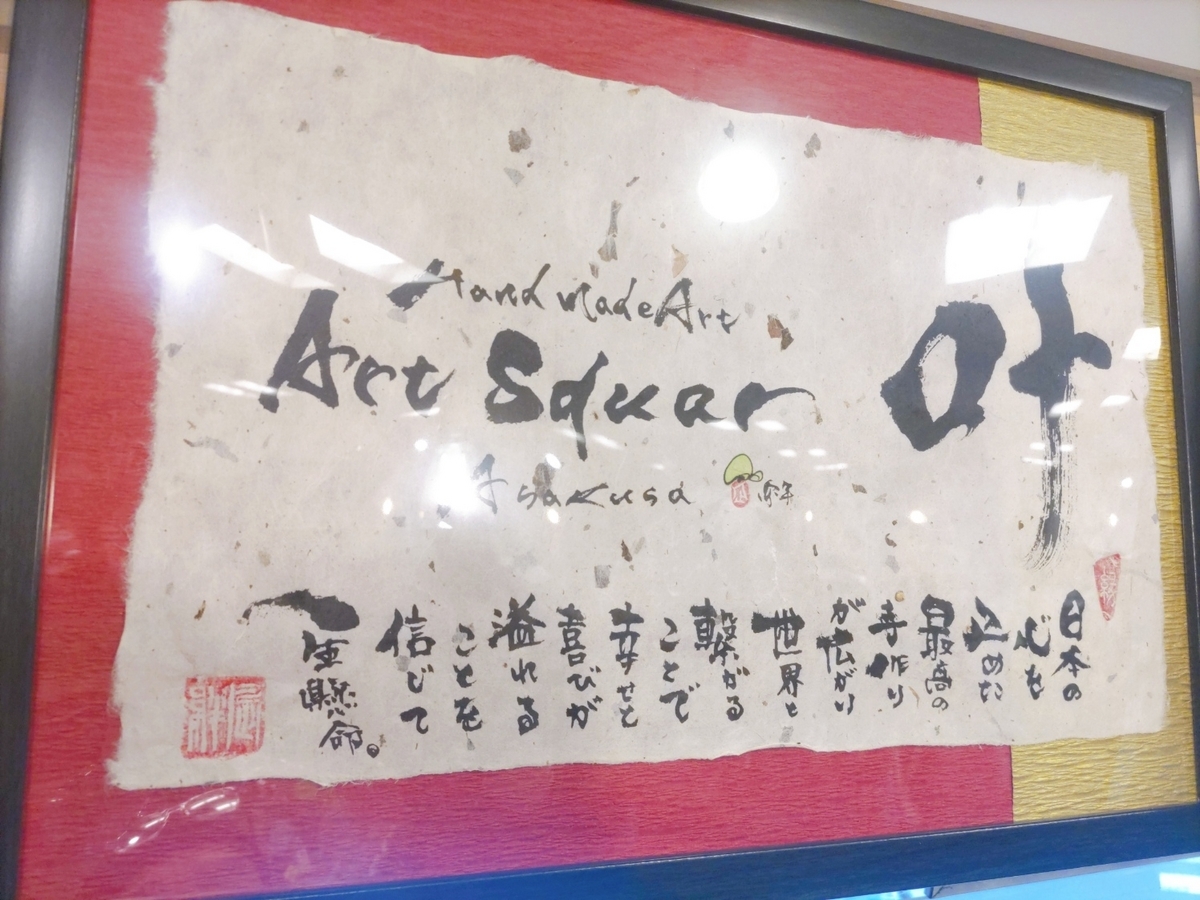 叶
Hand Made Art
Art Squar
Asakusa
日本の
心を
込めた
最高の
手作り
が広がり
世界と
繋がる
ことで
幸せと
喜びが
溢れる
ことを
信じて
一生懸命。